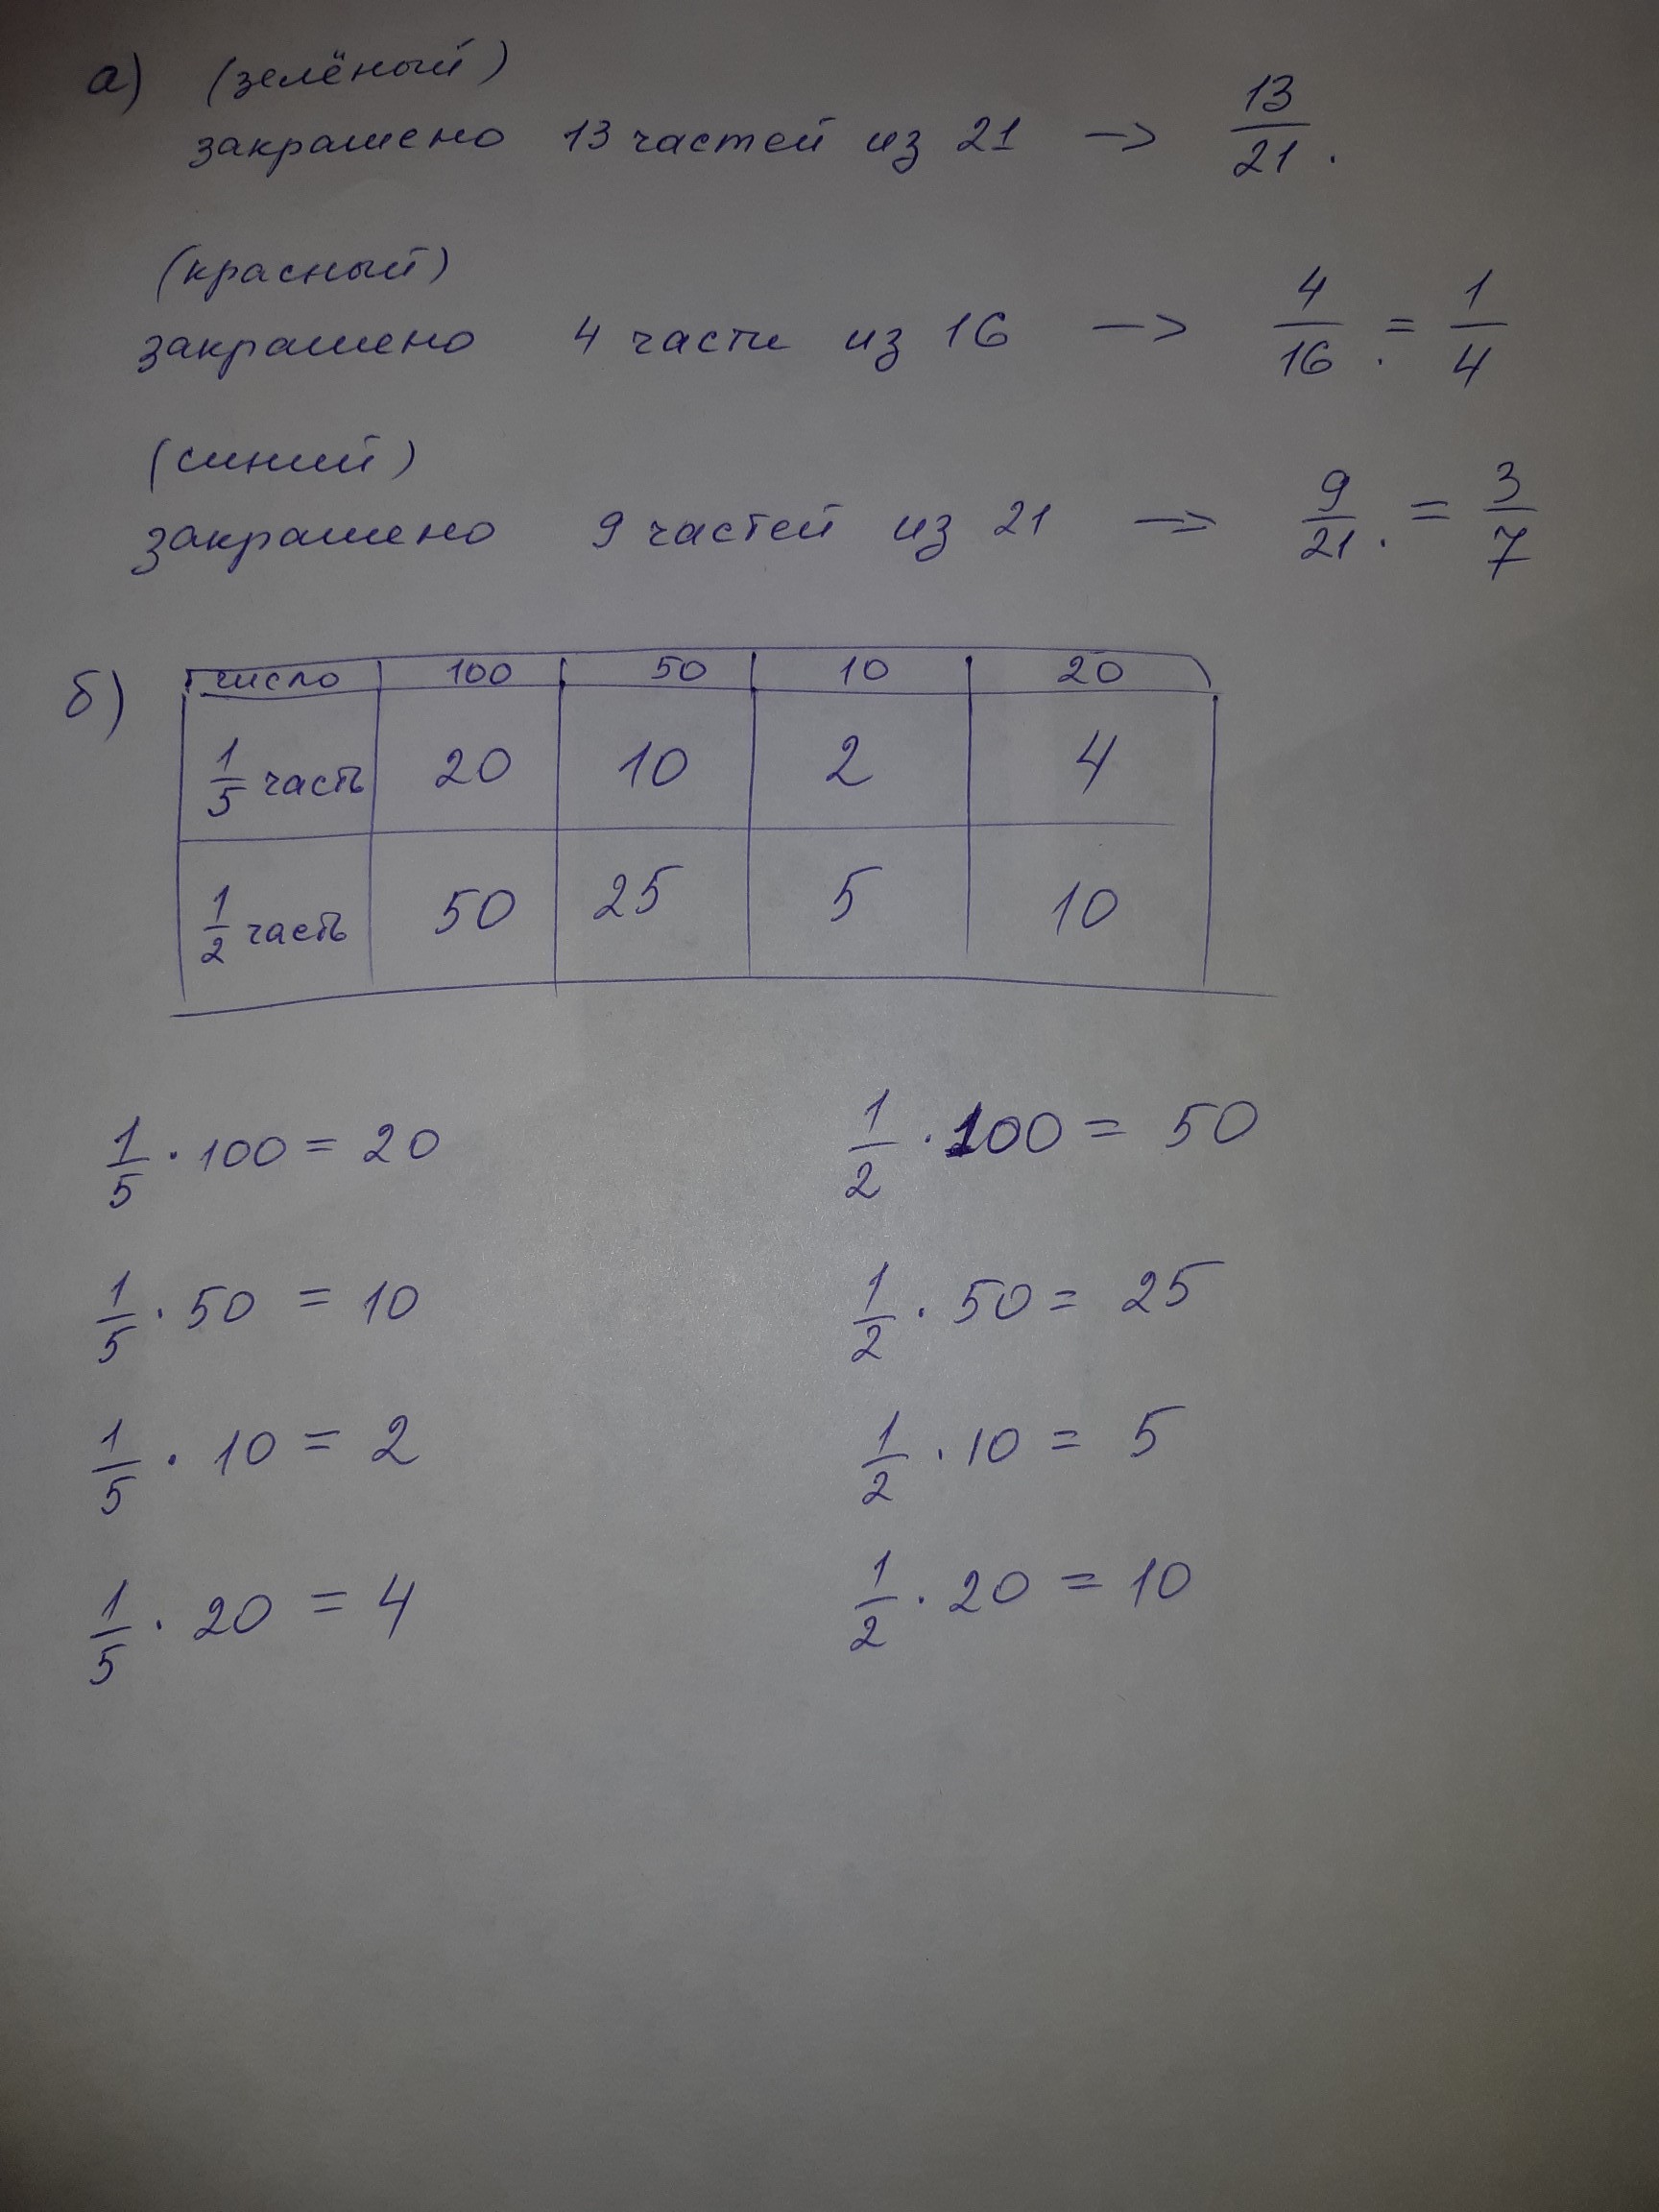 а) (зелёный)
закрашено 13 частей из 21 → 13/21.
(красный)
закрашено 4 части из 16 → 4/16. = 1/4
(синий)
закрашено 9 частей из 21 → 9/21. = 3/7
б) число 100 50 10 20
1/5 часть 20 10 2 4
1/2 часть 50 25 5 10
1/5 · 100 = 20
1/5 · 50 = 10
1/5 · 10 = 2
1/5 · 20 = 4
1/2 · 100 = 50
1/2 · 50 = 25
1/2 · 10 = 5
1/2 · 20 = 10